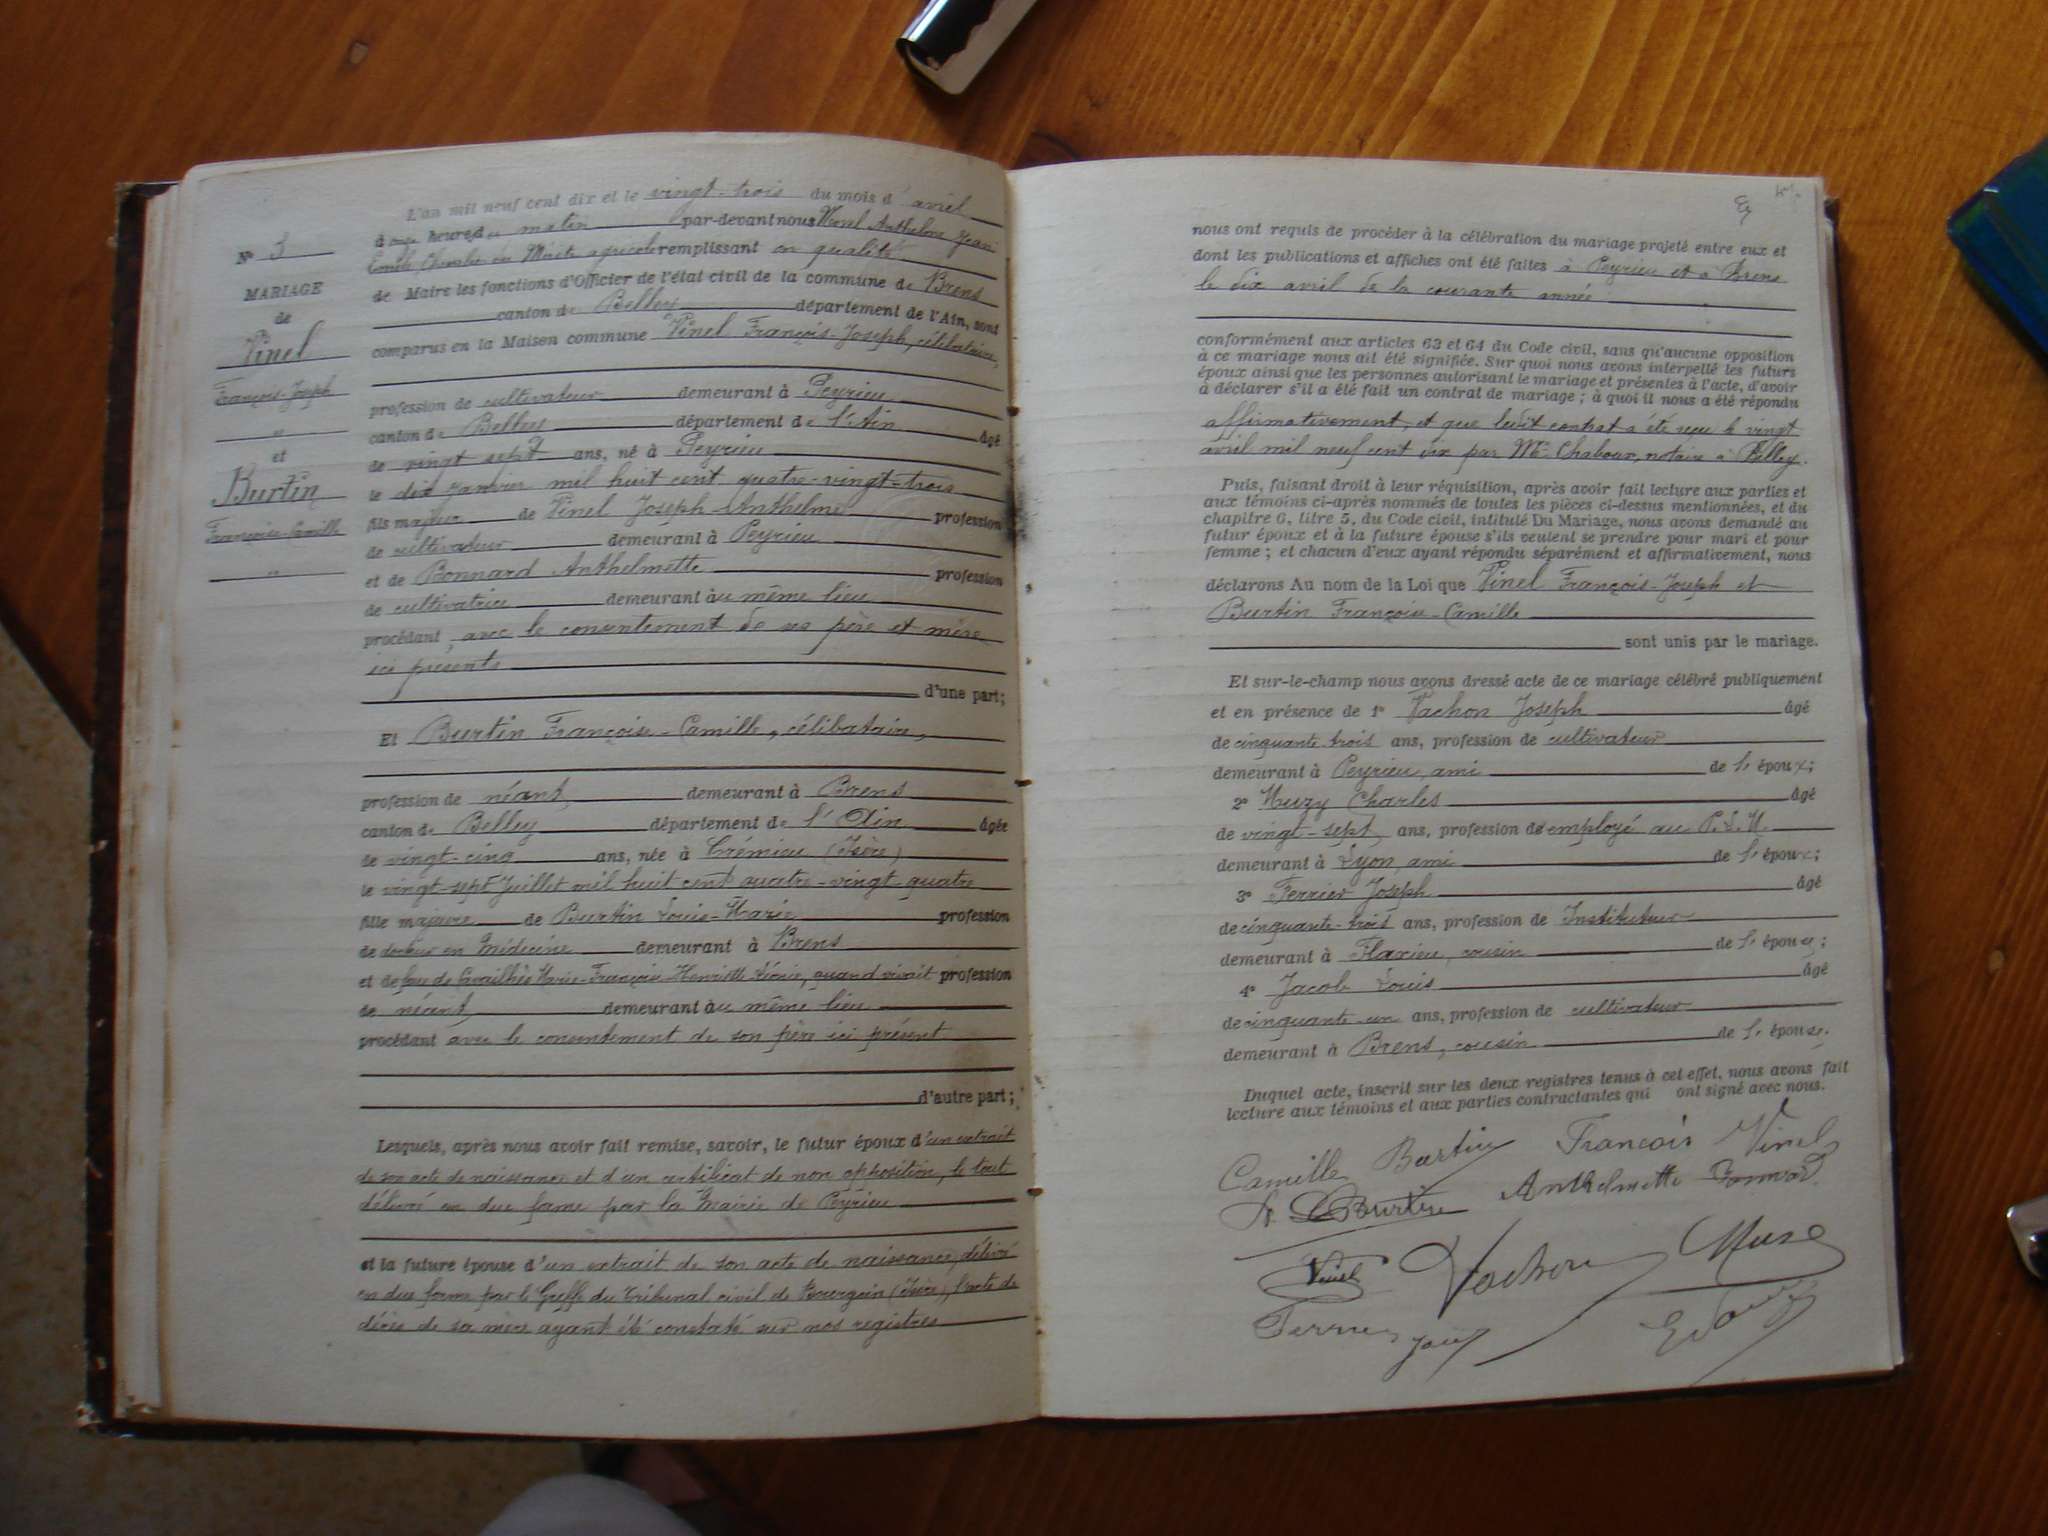 L'an mil neuf cent dix et le vingt-trois du mois d'avril
à onze heures du matin par-devant nous Morel Anthelme Jean
Emile, Chevalier du Mérite agricole remplissant en qualité
de Maire les fonctions d'Officier de l'état civil de la commune de Brens
canton de Belley département de l'Ain, sont
comparus en la Maison commune Vinel François-Joseph, célibataire,
profession de cultivateur demeurant à Peyrieu
canton de Belley département de l'Ain âgé
de vingt sept ans, né à Peyrieu
le dix janvier mil huit cent quatre-vingt-trois
fils majeur de Vinel Joseph-Anthelme profession
de cultivateur demeurant à Peyrieu
et de Bonnard Anthelmette profession
de cultivatrice demeurant au même lieu
procédant avec le consentement de ses père et mère
ici présents
d'une part;
Et Burtin Françoise-Camille, célibataire,
profession de néant demeurant à Brens
canton de Belley département de l'Ain âgée
de vingt-cinq ans, née à Crémieu (Isère)
le vingt-sept Juillet mil huit cent quatre-vingt-quatre
fille majeure de Burtin Louis-Marie profession
de docteur en Médecine demeurant à Brens
et de feue de Cavailhès Marie-Françoise-Henriette-Léonie, quand vivait profession
de néant demeurant au même lieu
procédant avec le consentement de son père ici présent
d'autre part;
Lesquels, après nous avoir fait remise, savoir, le futur époux d'un extrait
de son acte de naissance et d'un certificat de non opposition, le tout
délivré en due forme par la Mairie de Peyrieu
et la future épouse d'un extrait de son acte de naissance, délivré
en due forme par le Greffe du Tribunal civil de Bourgoin (Isère), l'acte de
décès de sa mère ayant été constaté sur nos registres
Nº 3
MARIAGE
de
Vinel
François-Joseph
"
et
Burtin
Françoise-Camille
"
nous ont requis de procéder à la célébration du mariage projeté entre eux et
dont les publications et affiches ont été faites à Peyrieu et à Brens
le dix avril de la courante année
conformément aux articles 63 et 64 du Code civil, sans qu'aucune opposition
à ce mariage nous ait été signifiée. Sur quoi nous avons interpellé les futurs
époux ainsi que les personnes autorisant le mariage et présentes à l'acte, d'avoir
à déclarer s'il a été fait un contrat de mariage; à quoi il nous a été répondu
affirmativement, et que ledit contrat a été reçu le vingt
avril mil neuf cent dix par Me Chaboux, notaire à Belley.
Puis, faisant droit à leur réquisition, après avoir fait lecture aux parties et
aux témoins ci-après nommés de toutes les pièces ci-dessus mentionnées, et du
chapitre 6, titre 5, du Code civil, intitulé Du Mariage, nous avons demandé au
futur époux et à la future épouse s'ils veulent se prendre pour mari et pour
femme; et chacun d'eux ayant répondu séparément et affirmativement, nous
déclarons Au nom de la Loi que Vinel François-Joseph et
Burtin Françoise-Camille
sont unis par le mariage.
Et sur-le-champ nous avons dressé acte de ce mariage célébré publiquement
et en présence de 1º Vachon Joseph âgé
de cinquante-trois ans, profession de cultivateur
demeurant à Peyrieu, ami de l'époux;
2º Muzy Charles âgé
de vingt-sept ans, profession de employé au P.L.M.
demeurant à Lyon, ami de l'époux;
3º Ferrier Joseph âgé
de cinquante-trois ans, profession de Instituteur
demeurant à Flaxieu, cousin de l'épouse;
4º Jacob Louis âgé
de cinquante-un ans, profession de cultivateur
demeurant à Brens, cousin de l'épouse.
Duquel acte, inscrit sur les deux registres tenus à cet effet, nous avons fait
lecture aux témoins et aux parties contractantes qui ont signé avec nous.
Camille Burtin François Vinel
Burtin Anthelmette Bonnard
Vinel Vachon Muzy
Ferrier